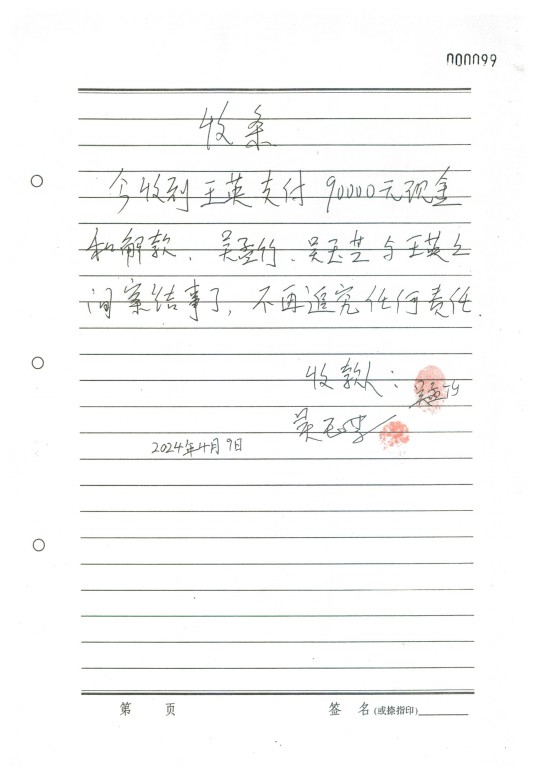 000099
收条
今收到王英支付90000元现金
和解款,吴孟竹、吴玉芝与王英之
间案结事了,不再追究任何责任.
收款人:吴孟竹
吴玉芝
2024年4月9日
第 页 签 名(或捺指印)